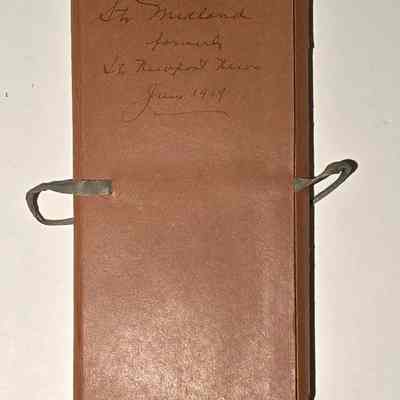 Str Midland
formerly
Str Newport News
June 1919